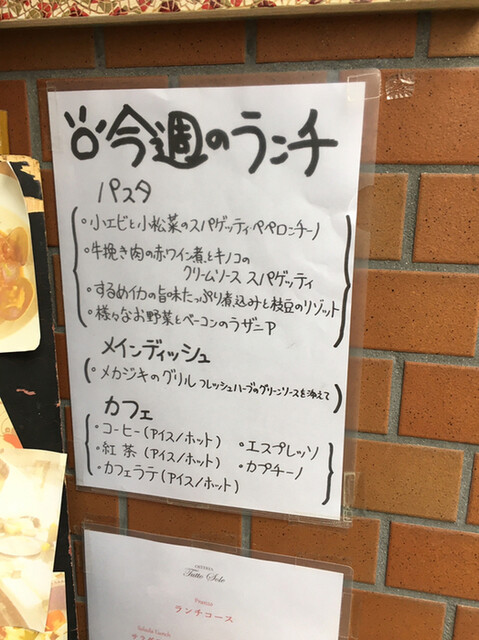 今週のランチ
パスタ
・小エビと小松菜のスパゲッティ・ペペロンチーノ
・牛挽き肉の赤ワイン煮とキノコの
クリームソース スパゲッティ
・するめイカの旨味たっぷり煮込みと枝豆のリゾット
・様々なお野菜とベーコンのラザニア
メインディッシュ
・メカジキのグリル フレッシュハーブのグリーンソースを添えて
カフェ
・コーヒー(アイス/ホット) ・エスプレッソ
・紅茶(アイス/ホット) ・カプチーノ
・カフェラテ(アイス/ホット)
Tutto Sole
ランチコース